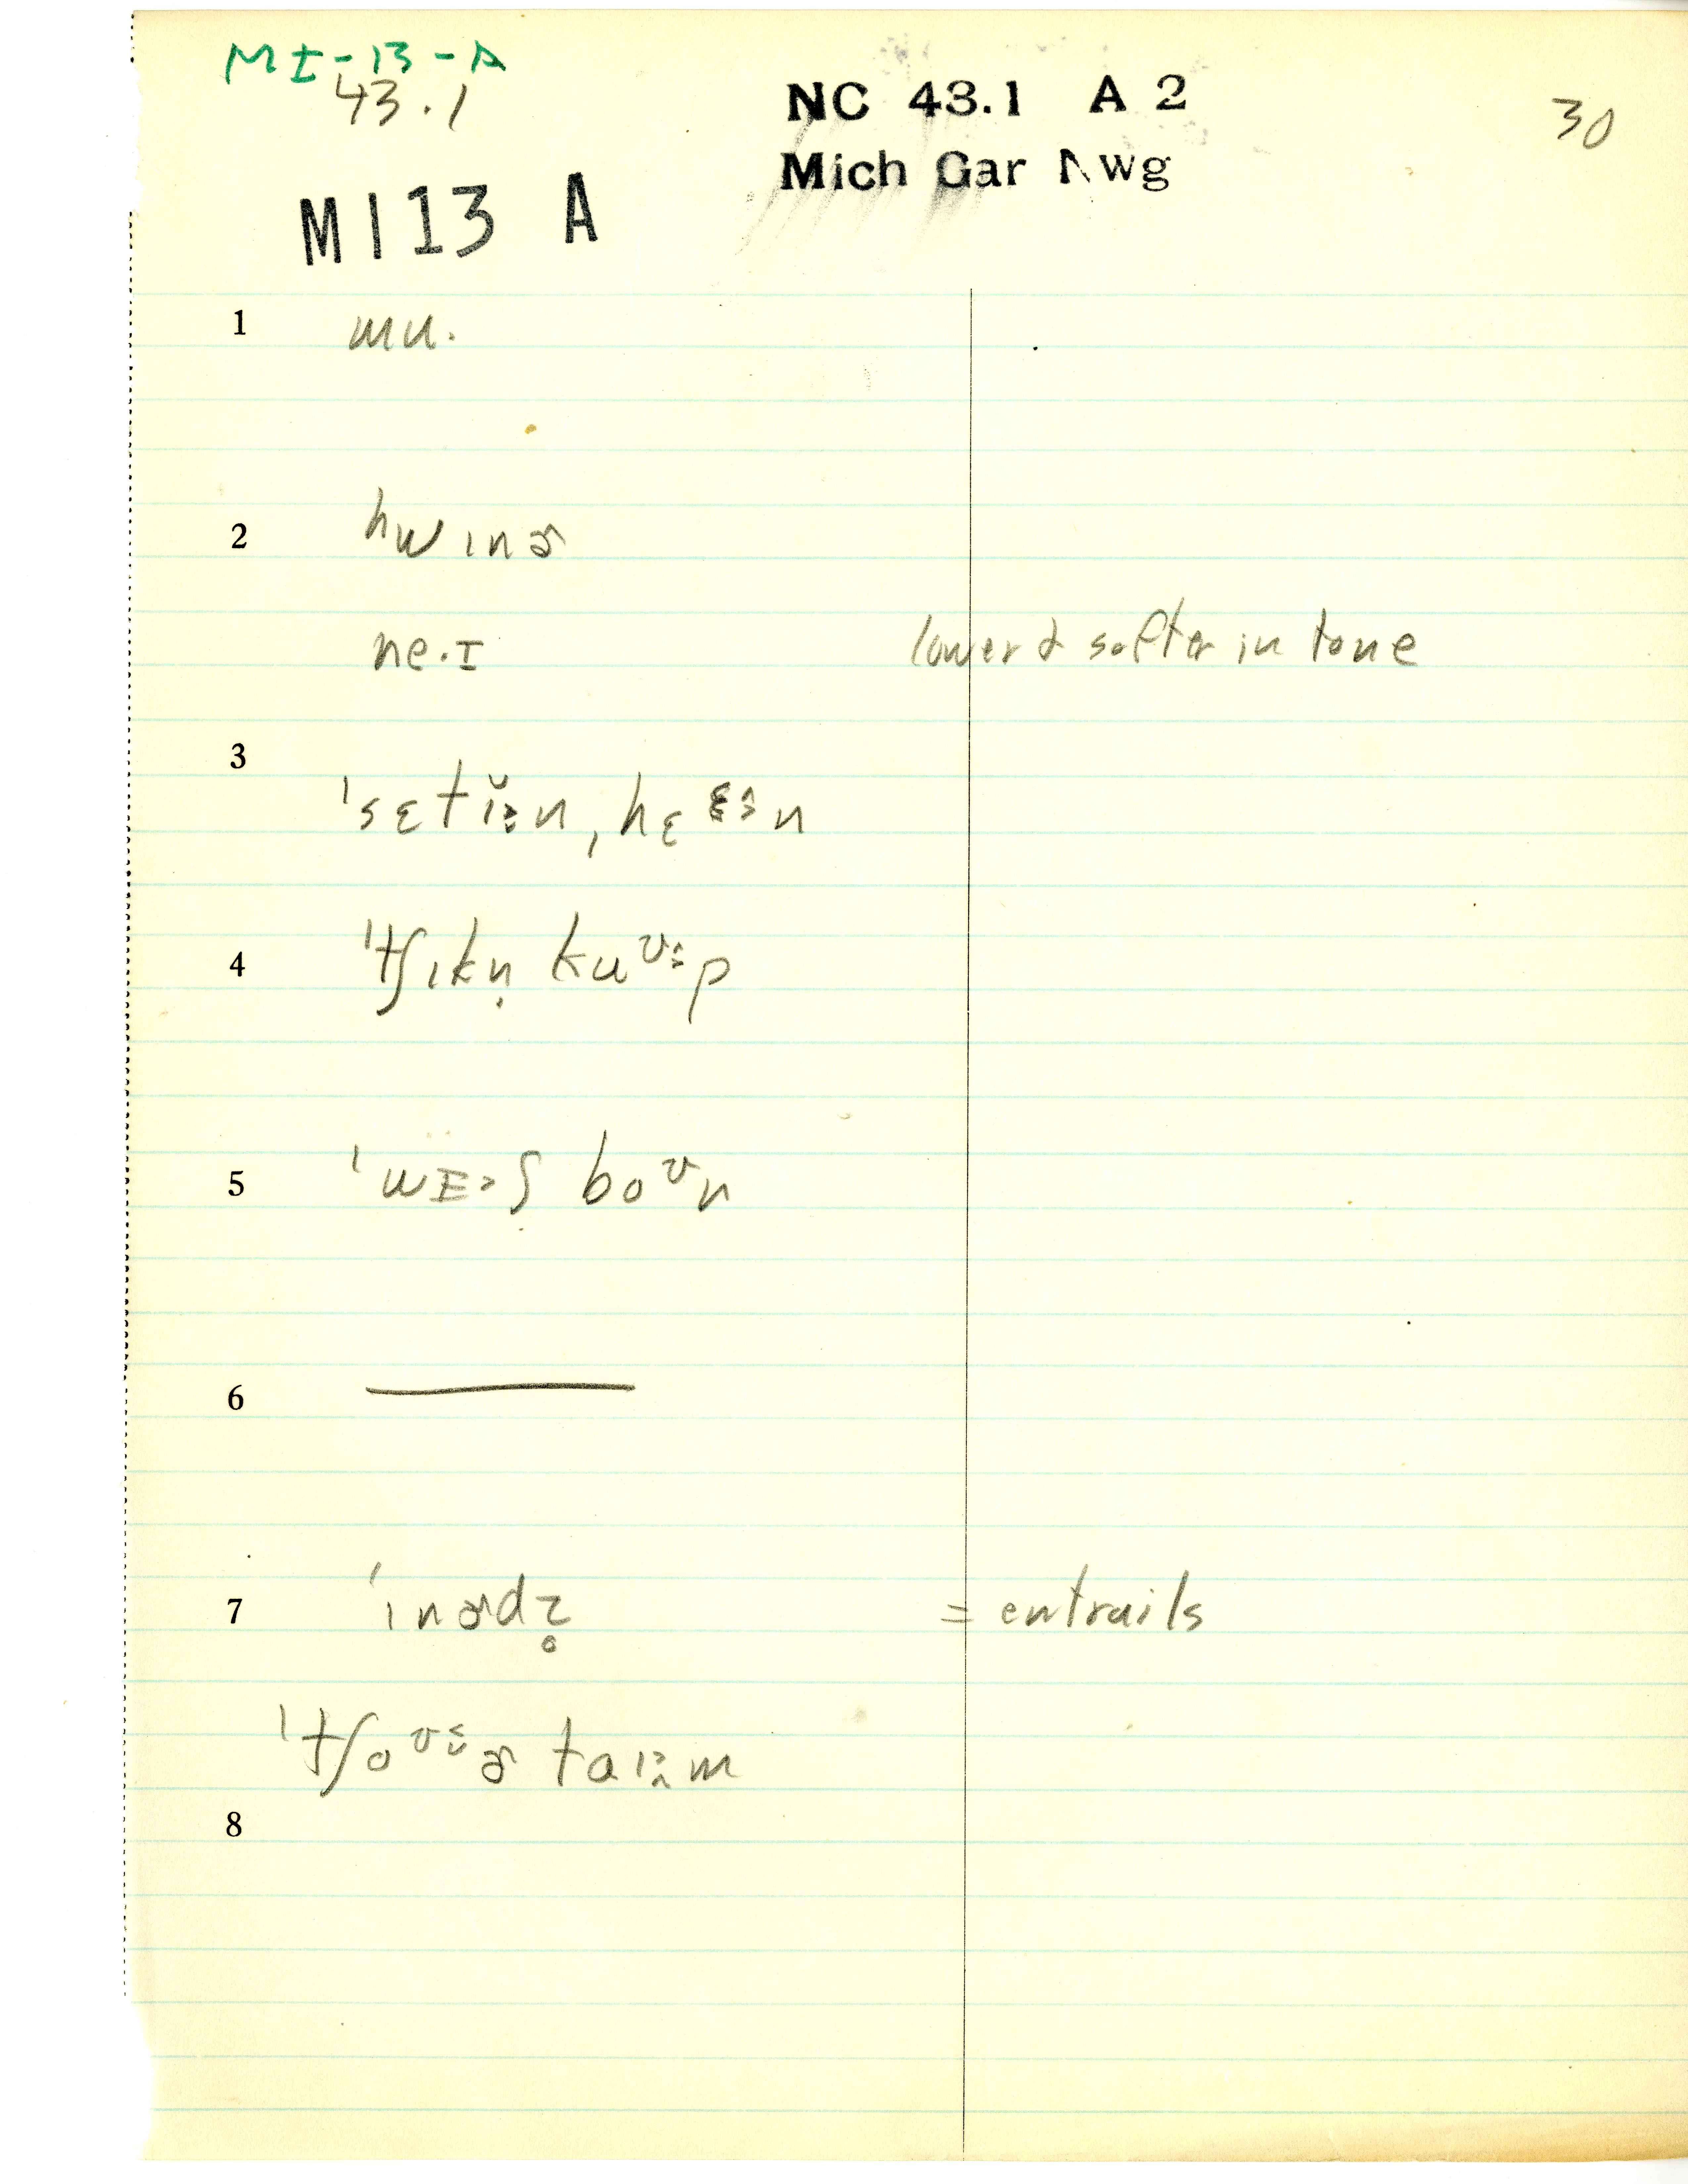 MI-13-A
43.1
NC 43.1 A 2
30
Mich Gar Nwg
MI13 A
1 mu.
2 hwɪnɚ
ne.ɪ lower & softer in tone
3 ˈsɛt ˌhɛ
4 ˈtʃɪkn̩ kuᴜp
5 ˈwɪʃ boᴜn
6
7 ˈɪnɚdz̥ = entrails
ˈtʃoᴜɚ taɪm
8